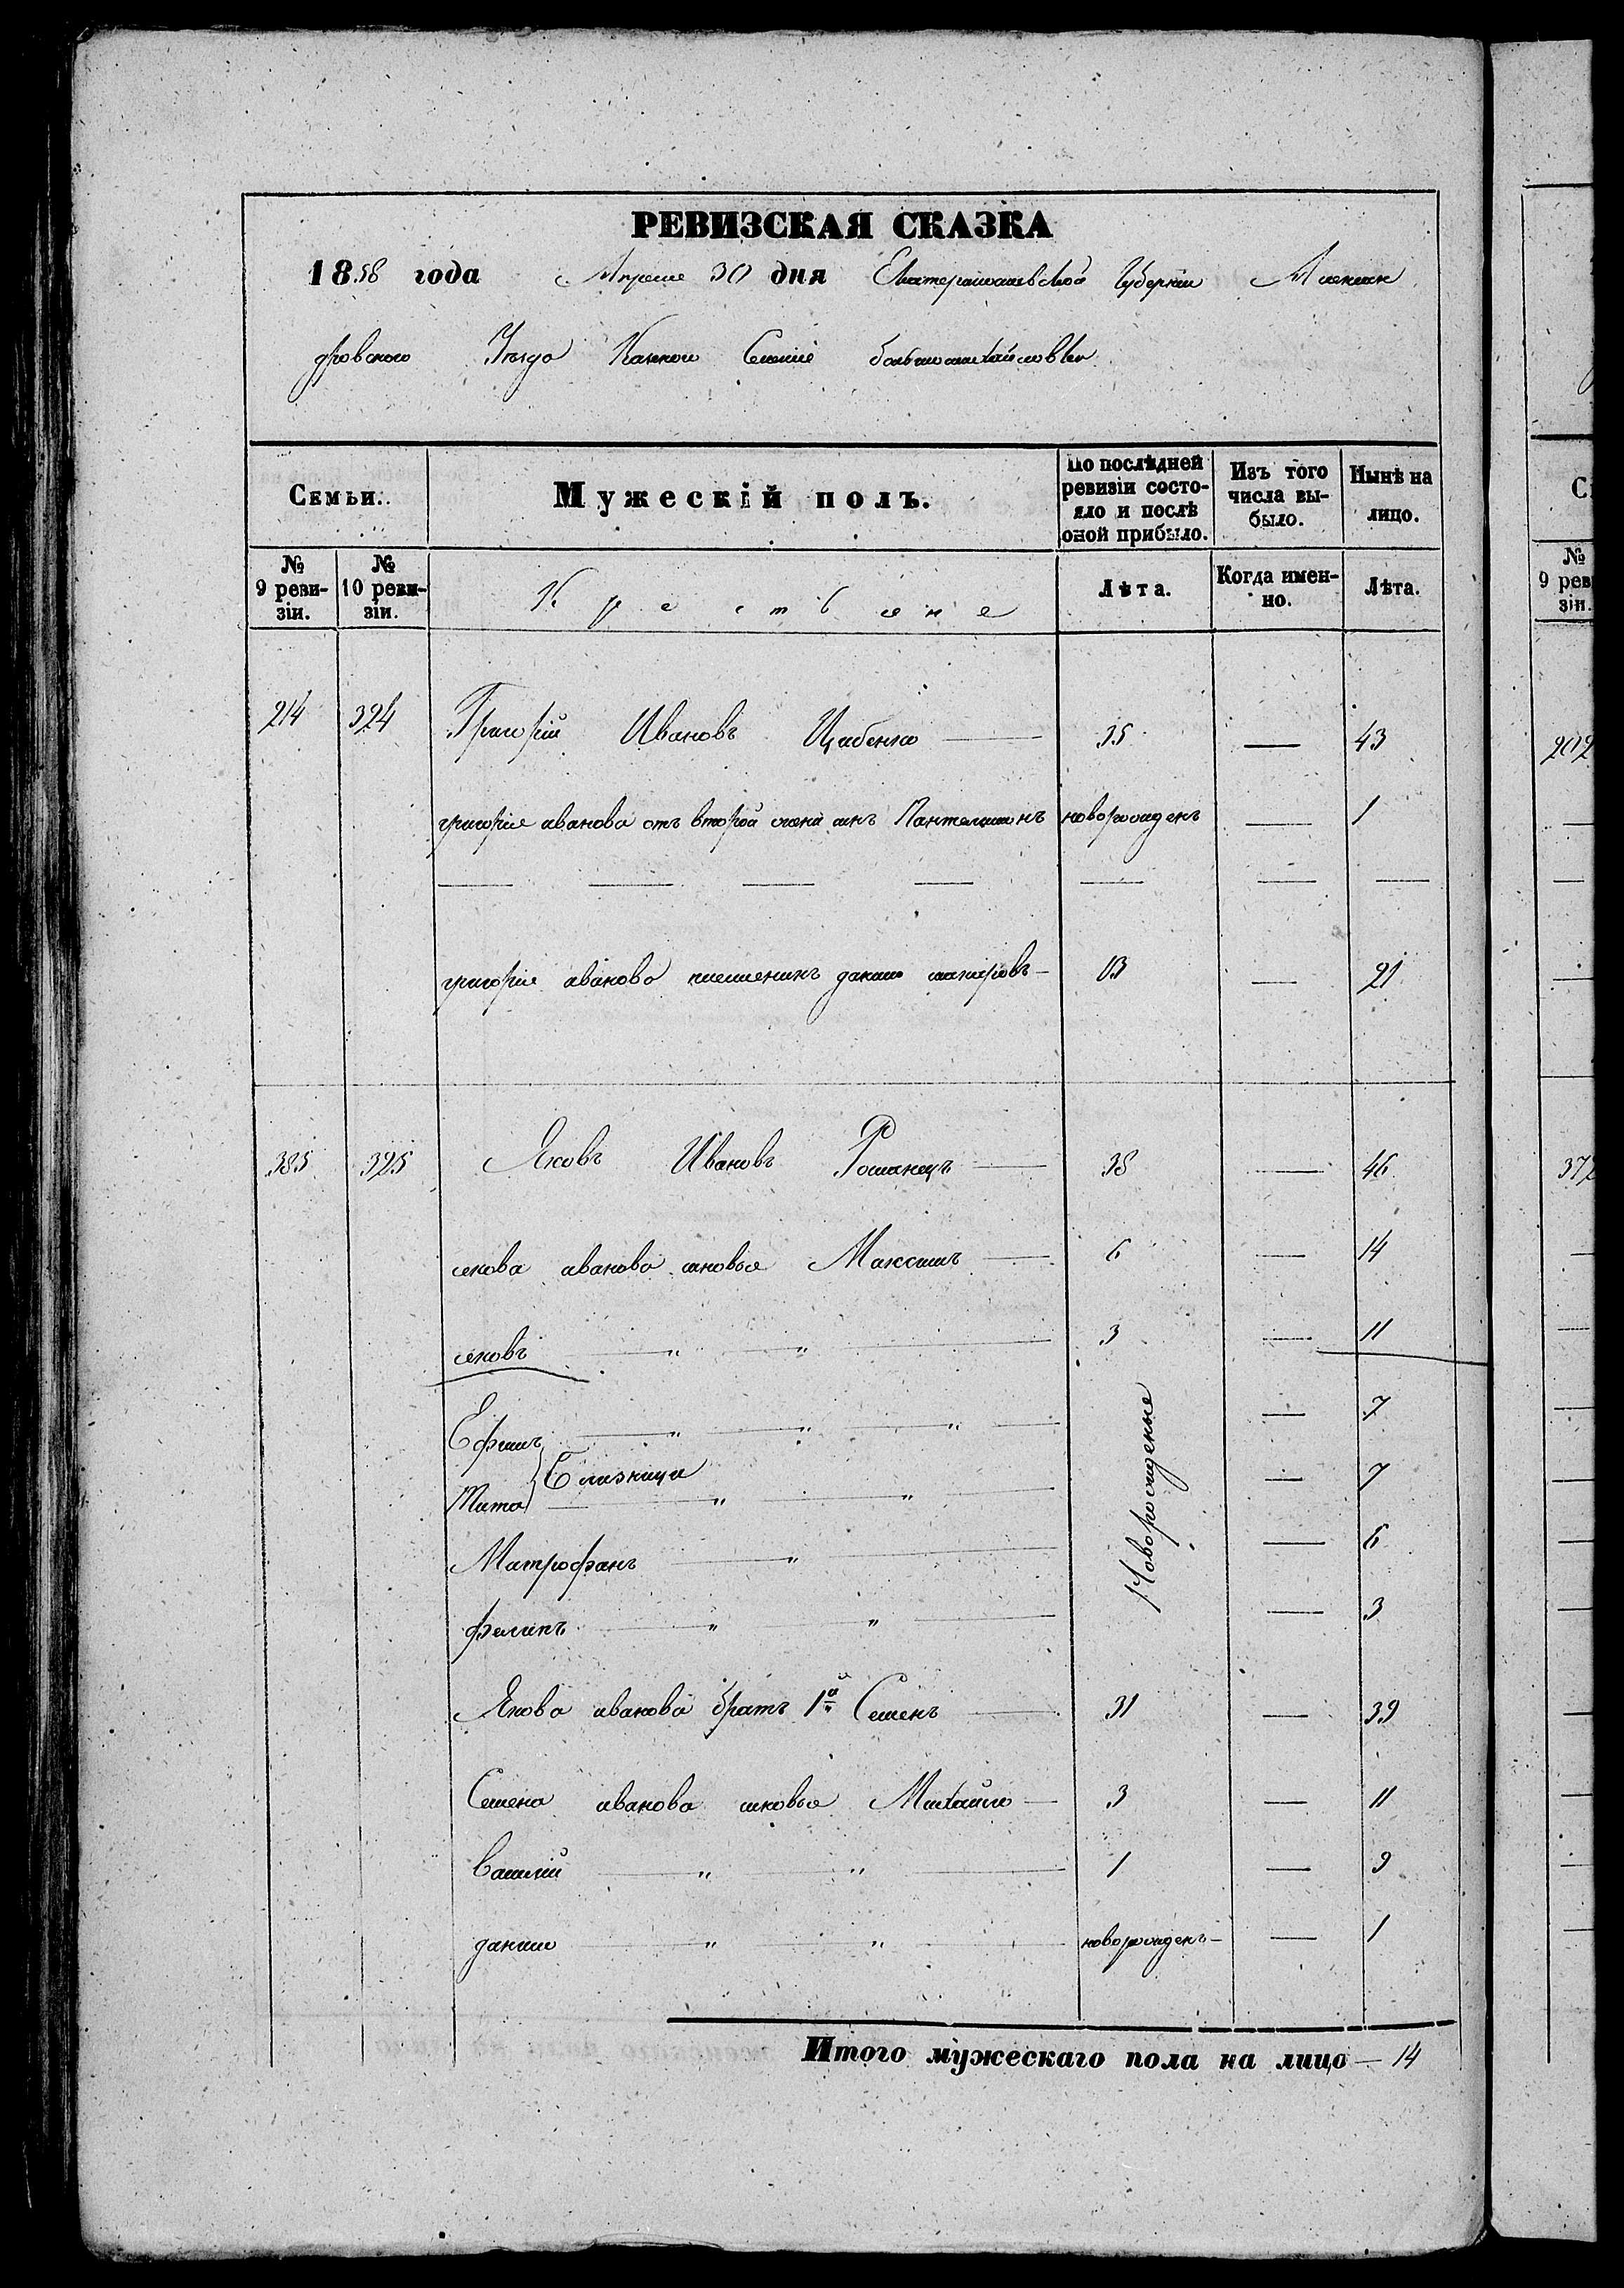 РЕВИЗСКАЯ СКАЗКА
1858 года Апреля 30 дня Екатеринославской Губернии Алексан
дровского Уезда Казенного Селения большомихайловки
Семьи. Мужескій полъ. По послѣдней ревизіи состояло и послѣ оной прибыло. Изъ того числа выбыло. Нынѣ на лицо.
№ 9 ревизіи. № 10 ревизіи. Крестьяне Лѣта. Когда именно. Лѣта.
214 324 Григорій Ивановъ Цабенко — 35 — 43
григорія иванова отъ второй жены сынъ Пантелимонъ новорожденъ — 1
григорія иванова племенникъ данило — 13 — 21
385 325 Яковъ Ивановъ Романецъ — 38 — 46
якова иванова сыновья Максимъ — 6 — 14
яковъ — „ — „ — 3 — 11
Ефимъ — „ — „ — „ — — 7
Близнецы
Тита — „ — „ — — 7
Новорожденные
Митрофанъ — „ — — 6
филипъ — „ — „ — — 3
Якова иванова братъ 1й Семенъ — 31 — 39
Семена иванова сыновья Михайло — 3 — 11
василій — „ — „ — 1 — 9
данило — „ — „ — новорожденъ — — 1
Итого мужескаго пола на лицо — 14
С
№ 9 рев зіи.
202
372